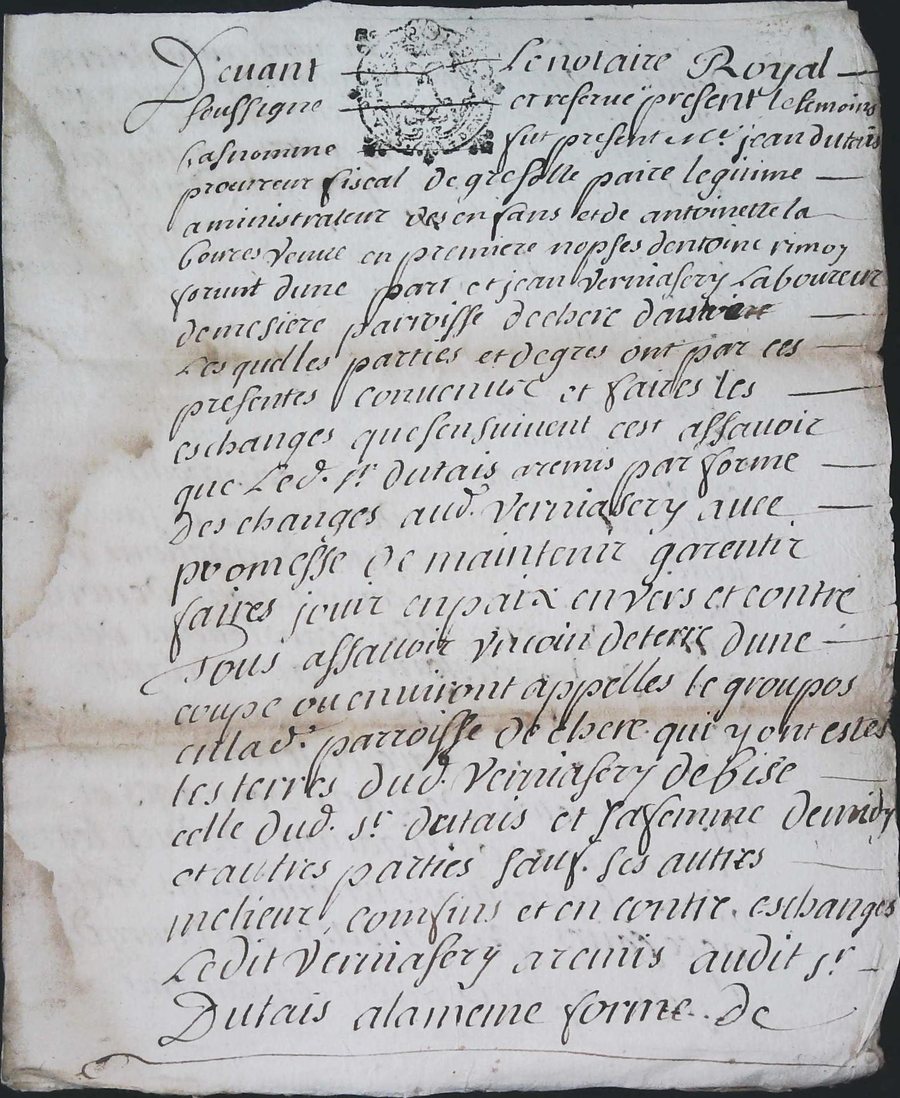 Devant Le notaire Royal
soussigne et reserve present le temoins
bas nomme fut present Mr. jean dutais
procureur fiscal de gresolle paire legitime
aministrateur des enfans et de antoinette la
boures veuve en premiere nopses dentoine rimoy
forunt dune part et jean vernasery Laboureur
demesiere parroisse dechere
Les quelles parties et degres ont par ces
presentes convenuee et faires les
eschanges quesensuivent cest assavoir
que Led. sr. dutais aremis par forme
Des changes aud. vernasery avec
promesse de maintenir garentir
faires jouir enpaix envers et contre
Tous assavoir vncoin deterre dune
coupe ou environt appelles le groupos
enlad. parroisse de chere qui y ont estes
les terres dud. vernasery de bise
celle dud. sr. dutais et sa femme demidy
et autres parties sauf ses autres
melieur comfins et en contre eschanges
Ledit vernasery aremis audit sr.
Dutais alameme forme de